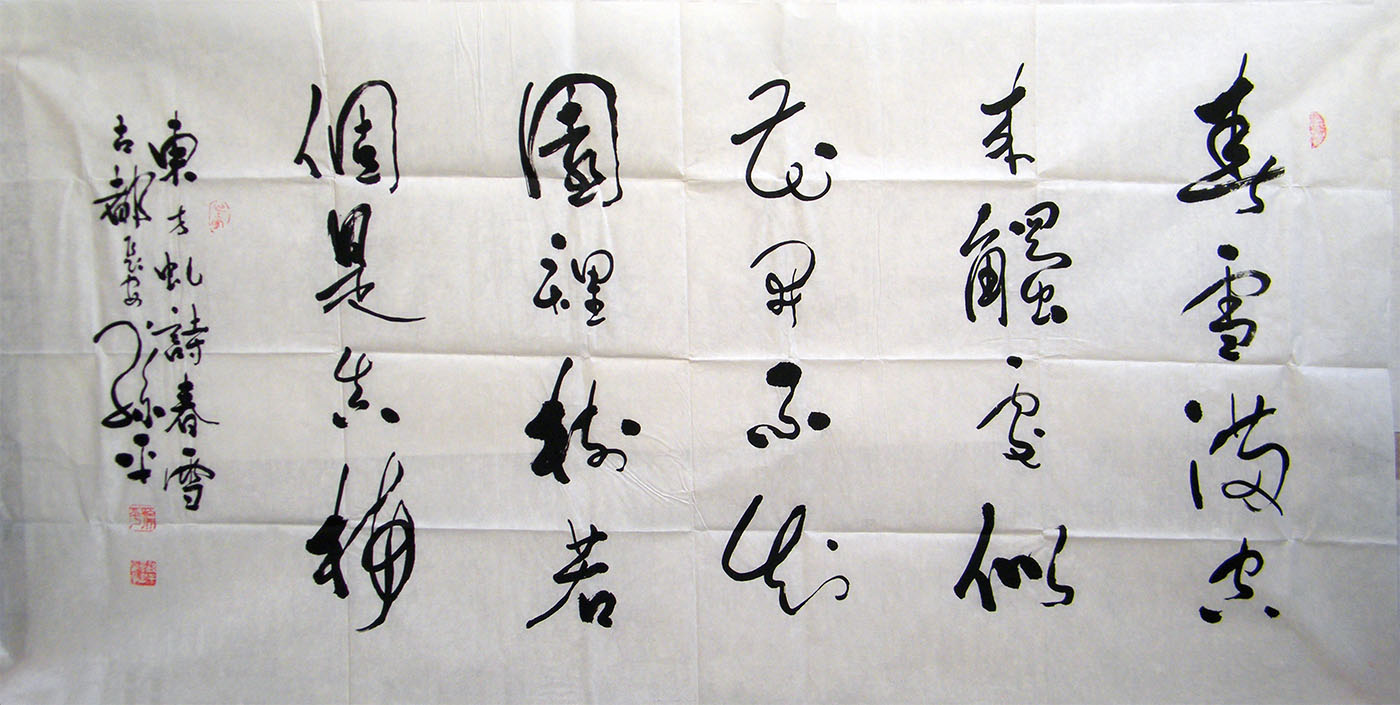 春雪滿空
來觸處似
花開不知
園裡樹若
個是真梅
東方虬詩春雪
古都長安 平